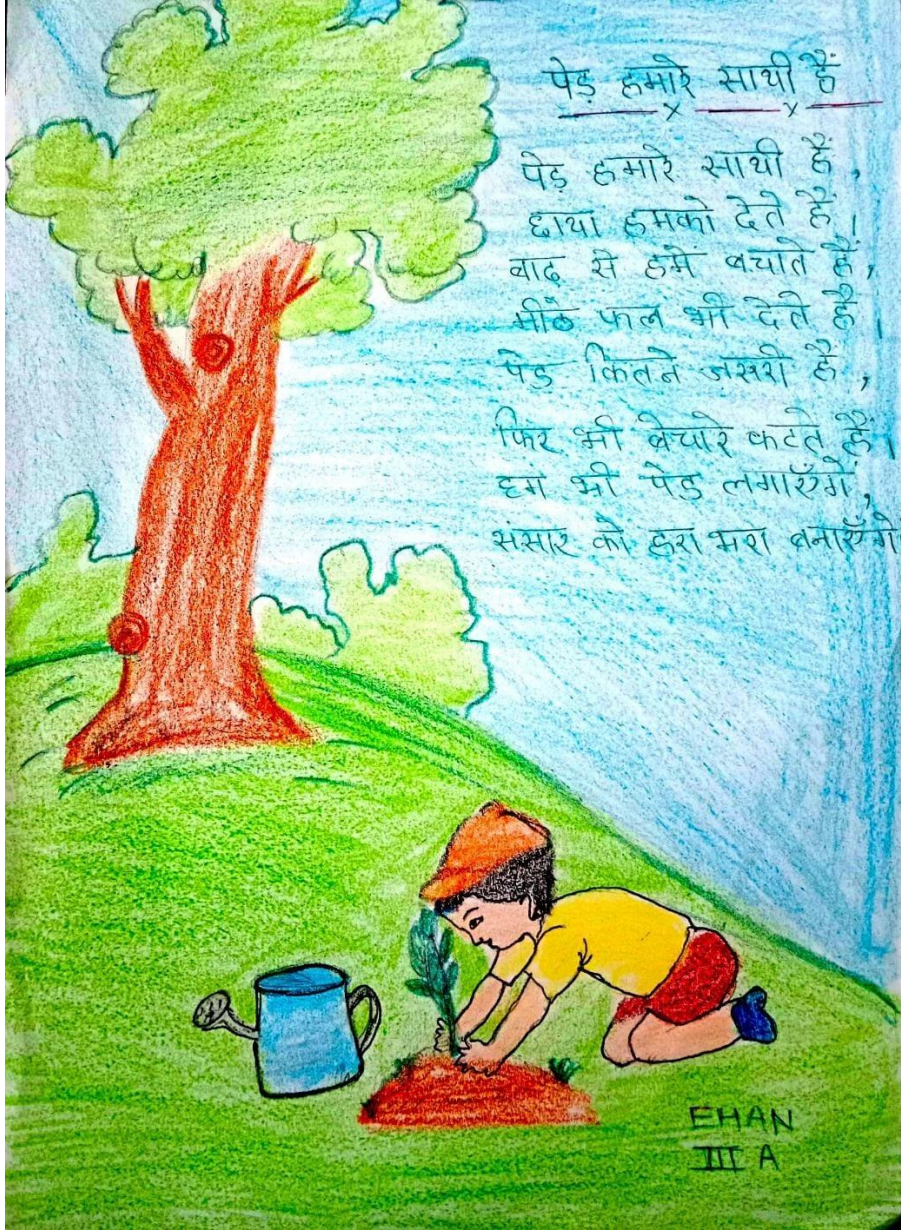 पेड़ हमारे साथी हैं
पेड़ हमारे साथी हैं,
छाया हमको देते हैं।
बाढ़ से हमें बचाते हैं,
मीठे फल भी देते हैं
पेड़ कितने जरुरी हैं,
फिर भी बेचारे कटते हैं।
हम भी पेड़ लगाएँगें,
संसार को हरा भरा बनाएँगे
EHAN
III A